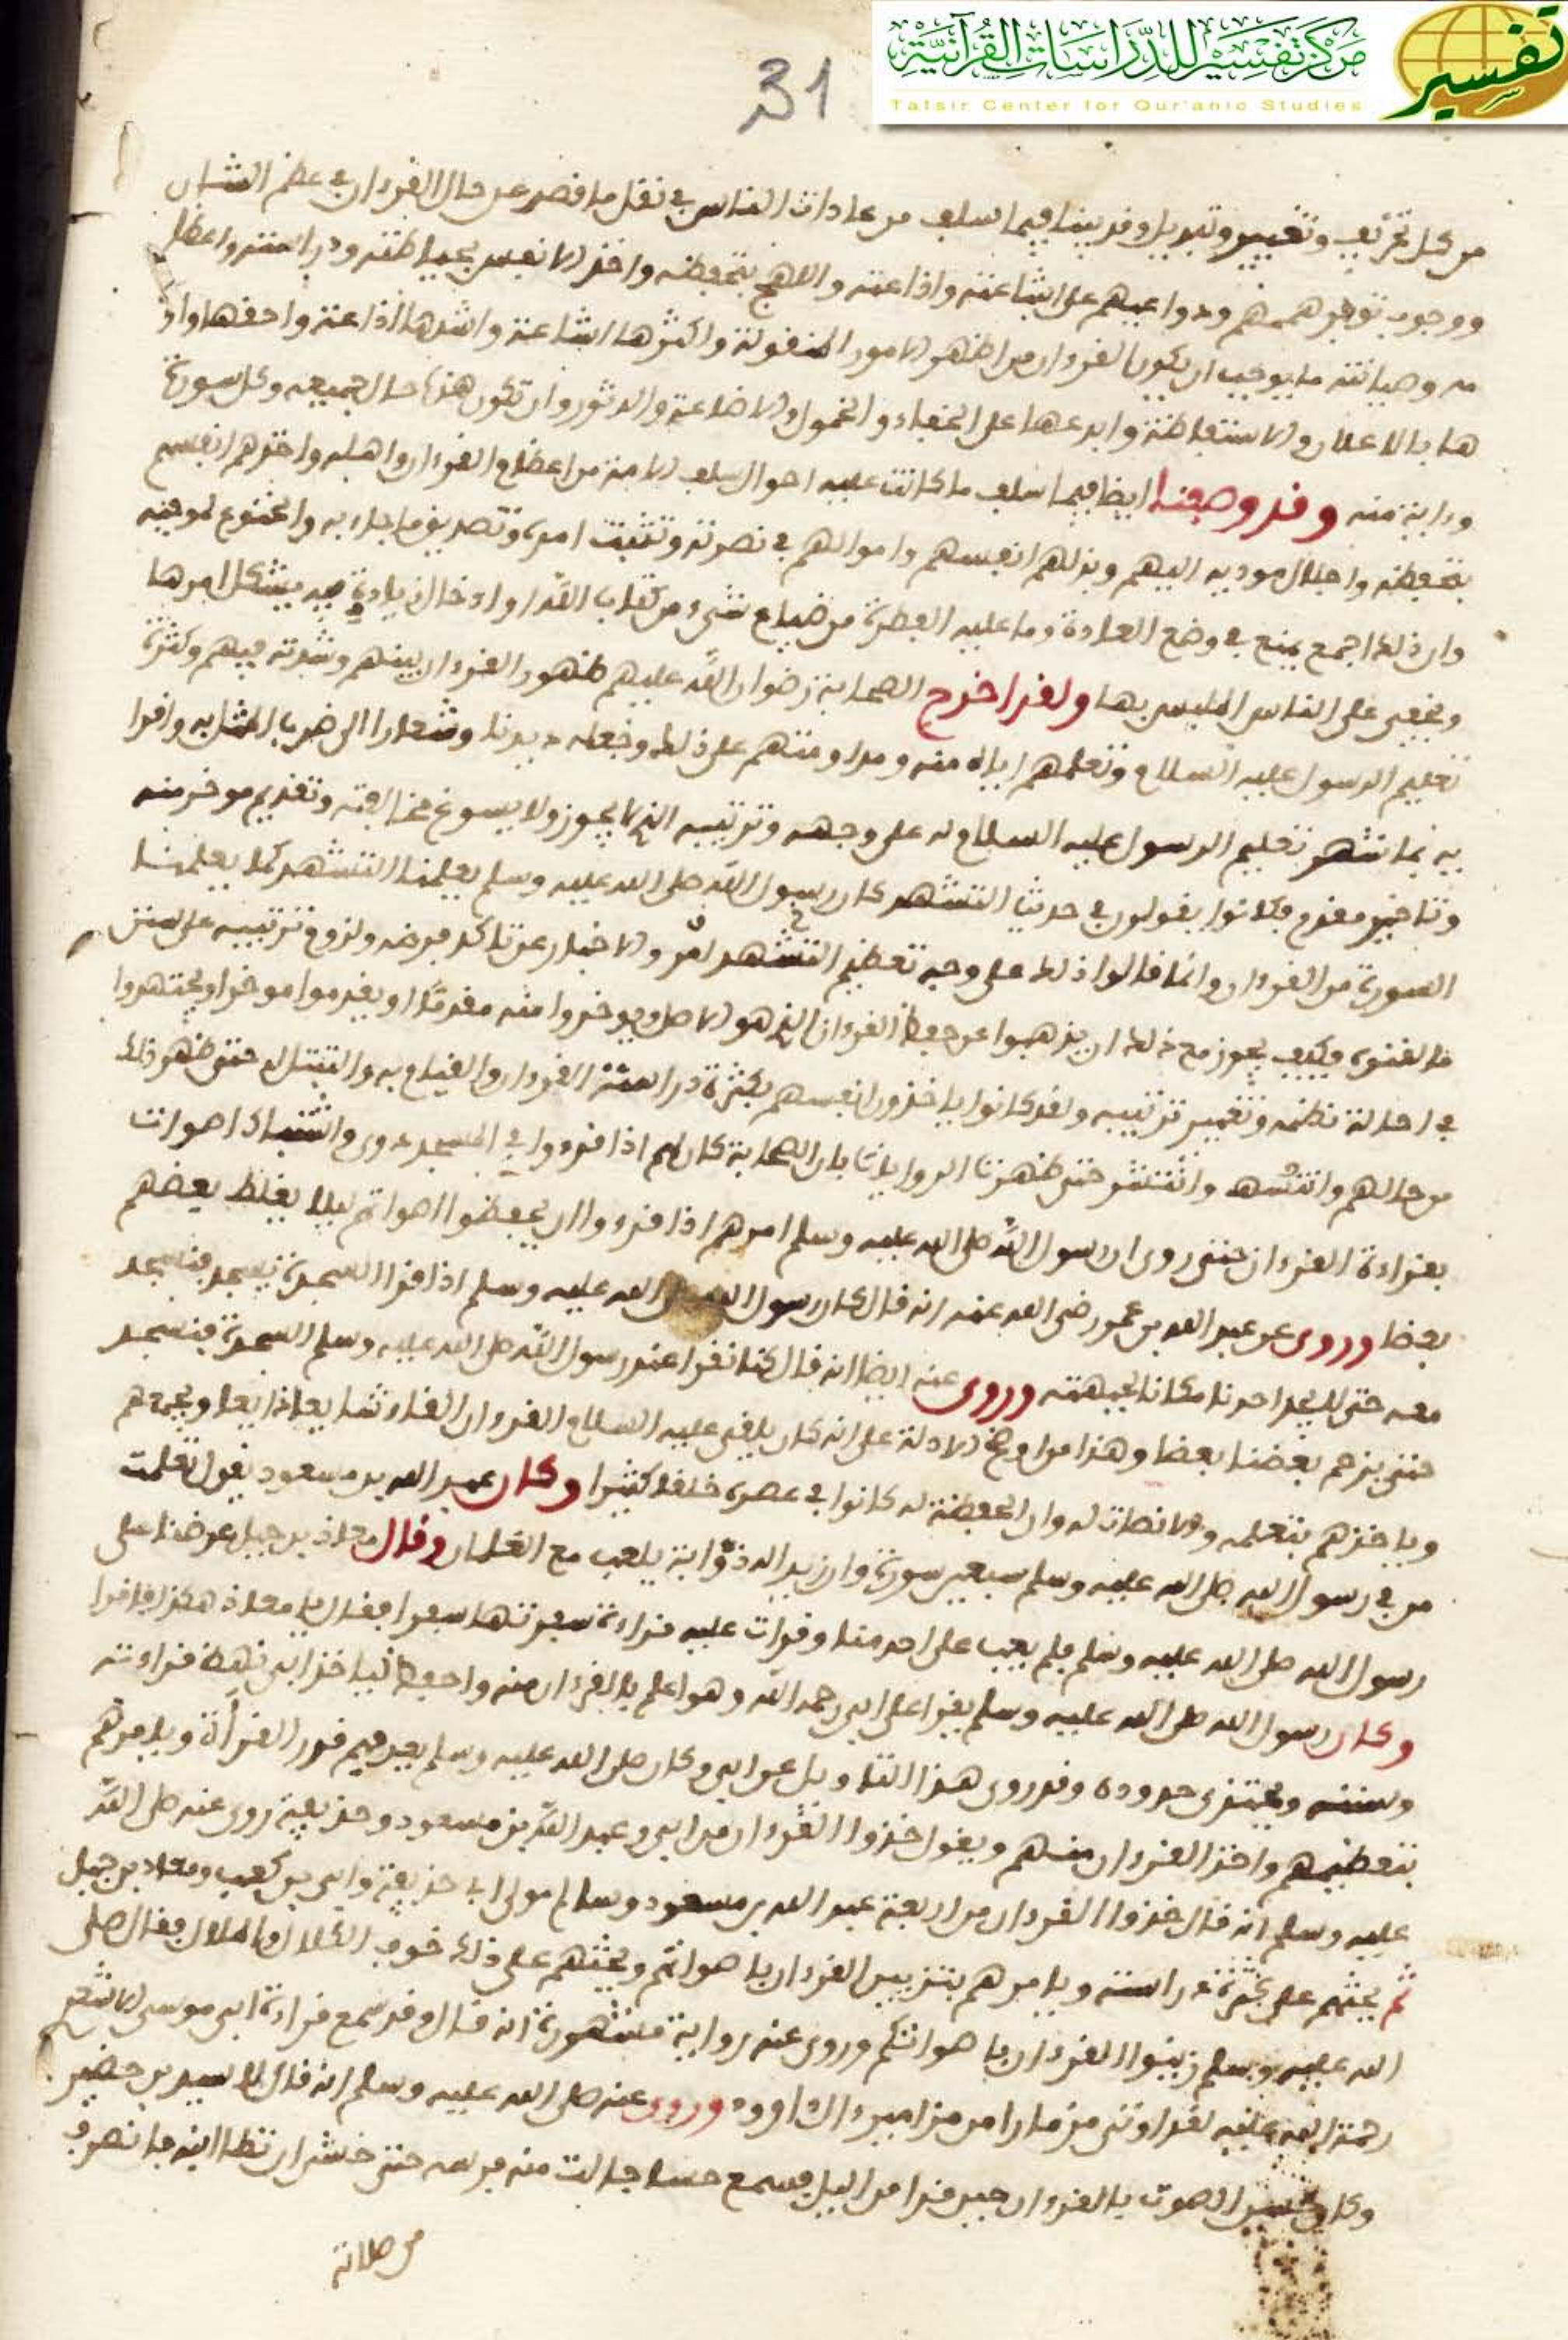 مركز تفسير للدراسات القرآنية
Tafsir Center for Qur'anic Studies
تفسير
31
من كل تحريف وتغيير وتبديل وقد بينا فيما سلف من عادات الناس في نقل ما قصر عن حال القرءان في عظم الشان
ووجوب توفر هممهم ودواعيهم على اشاعته واذاعته واللهج بتحفظه واخذ الانفس بحياطته ودراسته واعظا
مه وصيانته ما يوجب ان يكون القرءان من اظهر الامور المنقولة واكثرها اشاعة واشدها اذاعة واحقها واو
ها بالاعلان والاستفاظة وابعدها على الخفاء والخمول والاضاعة والدثور وان تكون هذه حال جميعه وكل سورة
وءاية منه وقد وصفنا ايضا فيما سلف ما كانت عليه احوال سلف الامة من اعظام القرءان واهله واخذهم انفسهم
بتحفظه واجلال موديه اليهم وبذلهم انفسهم واموالهم في نصرته وتثبيت امره وتصديق ما جاء به والخنوع لموجبه
وان ذلك اجمع يمنع في وضع العادة وما عليه الفطرة من ضياع شيء من كتاب الله او ادخال زيادة فيه يشكل امرها
ويخفى على الناس الملبس بها ولقد اخرج الصحابة رضوان الله عليهم ظهور القرءان بينهم وشهرته فيهم وكثرة
تعليم الرسول عليه السلام وتعلمهم اياه منه ومداومتهم على ذلك وجعله ديدنا وشعارا الى ضرب المثل به واقرا
به بما شهر تعليم الرسول عليه السلام له على وجهه وترتيبه الذي لا يجوز ولا يسوغ مخالفته وتقديم موخر منه
وتاخير مقدم فكانوا يقولون في حديث التشهد كان رسول الله صلى الله عليه وسلم يعلمنا التشهد كما يعلمنا
السورة من القرءان وانما قالوا ذلك على وجه تعظيم التشهد والاخبار عن تاكد فرضه ولزوم ترتيبه على سنن
فكيف يجوز مع ذلك ان يذهبوا عن حفظ القرءان الذي هو الاصل ويوخروا منه مقدما او يقدموا موخرا ويجتهدوا
في احالة نظمه وتغيير ترتيبه ولقد كانوا ياخذون انفسهم بكثرة دراسة القرءان والقيام به والتبتل له حتى ظهر ذلك
من حالهم وانتشر حتى تظهرت الروايات بان الصحابة كان لهم اذا قرءوا في المسجد دوي واشتباك اصوات
بقراءة القرءان حتى روي ان رسول الله صلى الله عليه وسلم امرهم اذا قرءوا ان يخفظوا اصواتهم ليلا يغلظ بعضهم
بعضا وروي عن عبد الله بن عمر رضي الله عنه انه قال كان رسول الله صلى الله عليه وسلم اذا قرا السجدة يسجد فنسجد
معه حتى لا يجد احدنا مكانا لجبهته وروي عنه ايضا انه قال كنا نقرا عند رسول الله صلى الله عليه وسلم السجدة فنسجد
حتى يزحم بعضنا بعضا وهذا من اوضح الادلة على انه كان يلقي عليه السلام القرءان القاء شايعا ذايعا ويجمعهم
وياخذهم بتعلمه والانصات له وان الحفظة له كانوا في عصره خلقا كثيرا وكان عبد الله بن مسعود يقول تعلمت
من في رسول الله صلى الله عليه وسلم سبعين سورة وان زيدا له ذؤابة يلعب مع الغلمان وقال معاذ بن جبل عرضنا على
رسول الله صلى الله عليه وسلم فلم يعب على احد منا وقرات عليه قراءة سفرتها سفرا فقال يا معاذ هكذا فاقرا
وكان رسول الله صلى الله عليه وسلم يقرا على ابي رحمه الله وهو اعلم بالقرءان منه واحفظ لياخذ ابي نمط قراءته
وسنته ويحتذي حدوده وقد روي هذا التاويل عن ابي وكان صلى الله عليه وسلم يعرفهم قدر القرأة ويامرهم
بتعظيمهم واخذ القرءان منهم ويقول خذوا القرءان من ابي وعبد الله بن مسعود وحذيفة روي عنه صلى الله
عليه وسلم انه قال خذوا القرءان من اربعة عبد الله بن مسعود وسالم مولى ابي حذيفة وابي بن كعب ومعاذ بن جبل
ثم يحثهم على كثرة دراسته ويامرهم بتزيين القرءان باصواتهم ويحثهم على ذلك خوف الكلال والملال فقال صلى
الله عليه وسلم زينوا القرءان باصواتكم وروي عنه رواية مشهورة انه قال وقد سمع قراءة ابي موسى الاشعر
رحمة الله عليه لقد اوتي مزمارا من مزامير ءال داوود وروي عنه صلى الله عليه وسلم انه قال لاسيد بن حضير
وكان حسن الصوت بالقرءان حين قرا من الليل فسمع حسا جالت منه فرسه حتى خشي ان تطا ابنه فانصرف
من صلاته